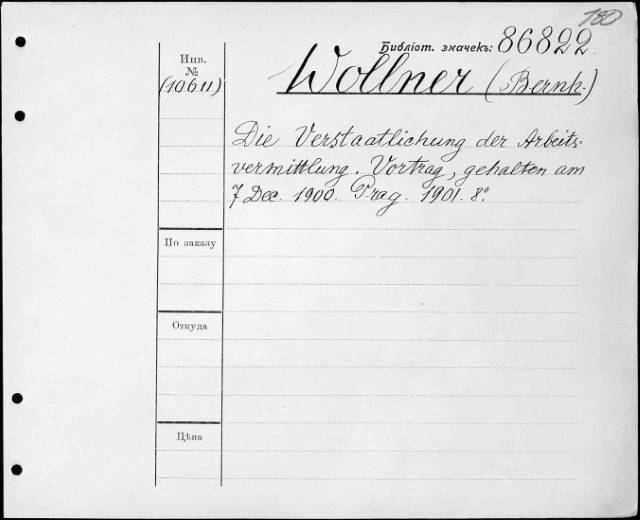 180
Библіот. значекъ: 86822.
Инв.
№
(10611)
Wollner (Bernh.)
Die Verstaatlichung der Arbeits=
vermittlung. Vortrag, gehalten am
7 Dec. 1900. Prag. 1901. 8º.
По заказу
Откуда
Цѣна